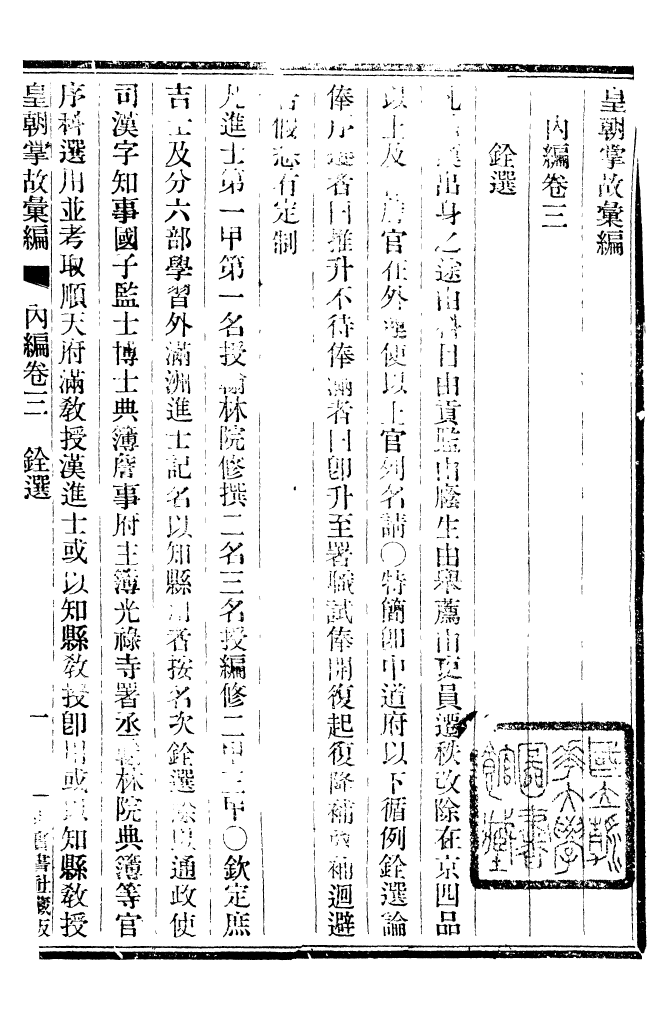 皇朝掌故彙編
內編卷三
銓選
出身之途由科目由貢監由廕生由舉薦由吏員遷秩改除在京四品
以上及 官在外 使以上官列名請〇特簡郎中道府以下循例銓選論
俸序 者曰推升不待俸滿者曰卽升至署職試俸開復起復降補 補迴避
告假悉有定制
凡進士第一甲第一名授翰林院修撰二名三名授編修二甲三甲〇欽定庶
吉士及分六部學習外滿洲進士記名以知縣用者按名次銓選 以通政使
司漢字知事國子監士博士典簿詹事府主簿光祿寺署丞翰林院典簿等官
序科選用並考取順天府滿敎授漢進士或以知縣敎授卽用或以知縣敎授
皇朝掌故彙編 內編卷三 銓選 一 書社藏板
國立 大學圖書館藏